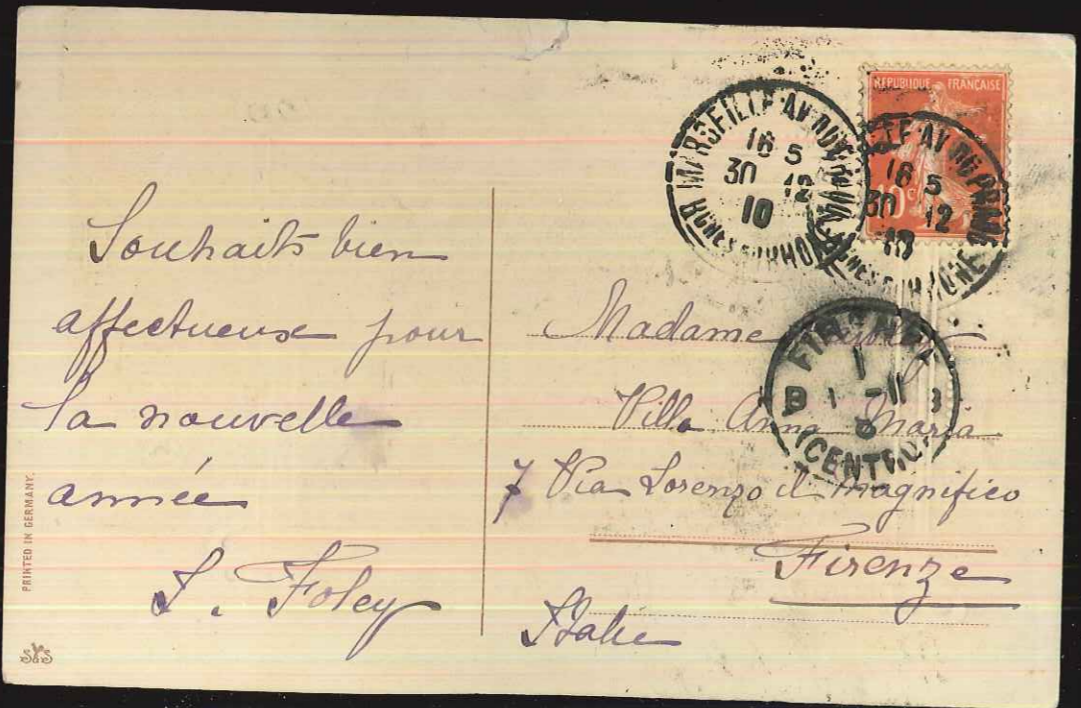 Souhaits bien
affectueux pour
la nouvelle
année
J. Foley
PRINTED IN GERMANY.
REPUBLIQUE FRANÇAISE
10c
MARSEILLE AV DU
16 5
30 12
10
BCHES DU RHONE
AV DU PRADO
16 5
30 12
10
BCHES DU RHONE
FIRENZE
1
B 1 -11
(CENTRO)
Madame
Villa Anna Maria
7 Via Lorenzo il magnifico
Firenze
Italie